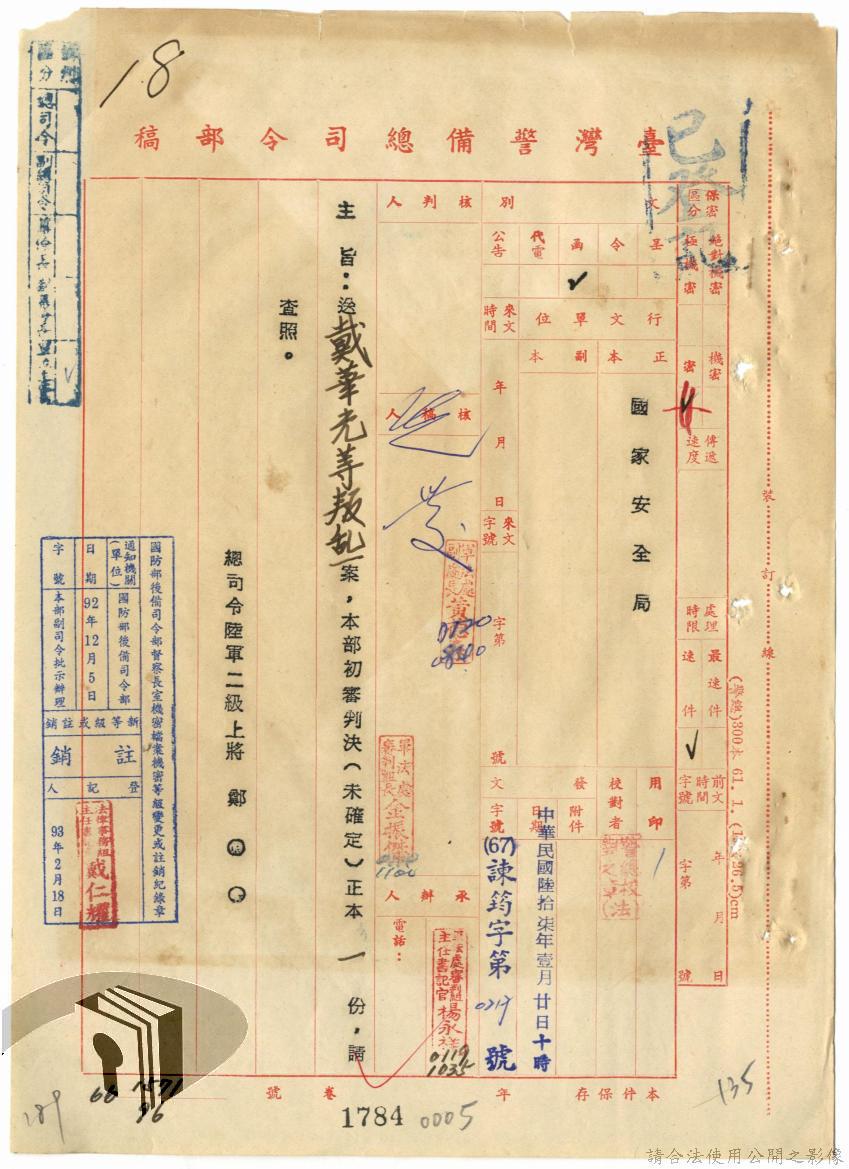 18
臺灣警備總司令部稿
保密區分
絕對機密
極機密
機密
密
傳遞速度
處理時限
最速件
速件
前文時間字號
年月日
字第
號
文別
呈
令
函
代電
公告
行文單位
正本
副本
國家安全局
來文時間
年月日
來文字號
字第
號
用印
校對者
發文
附件
日期
字號
中華民國陸拾柒年壹月廿日十時
(67)諫筠字第
號
核判人
核稿人
承辦人
電話：
0120
0840
軍法處審判組長金振傑
1100
主任書記官楊永祥
0119
1035
主旨：送戴華光等叛乱一案，本部初審判決（未確定）正本一份，請
查照。
總司令陸軍二級上將鄭
裝訂線
總司令
國防部後備司令部督察長室機密檔案機密等級變更或註銷紀錄章
通知機關(單位)
國防部後備司令部
日期
92年12月5日
字號
本部副司令批示辦理
新等級或註銷
註銷
登記人
法律事務組
戴仁耀
93年2月18日
本件保存
年
卷
號
66 1571
96
1784 0005
189
135
請合法使用公開之影像